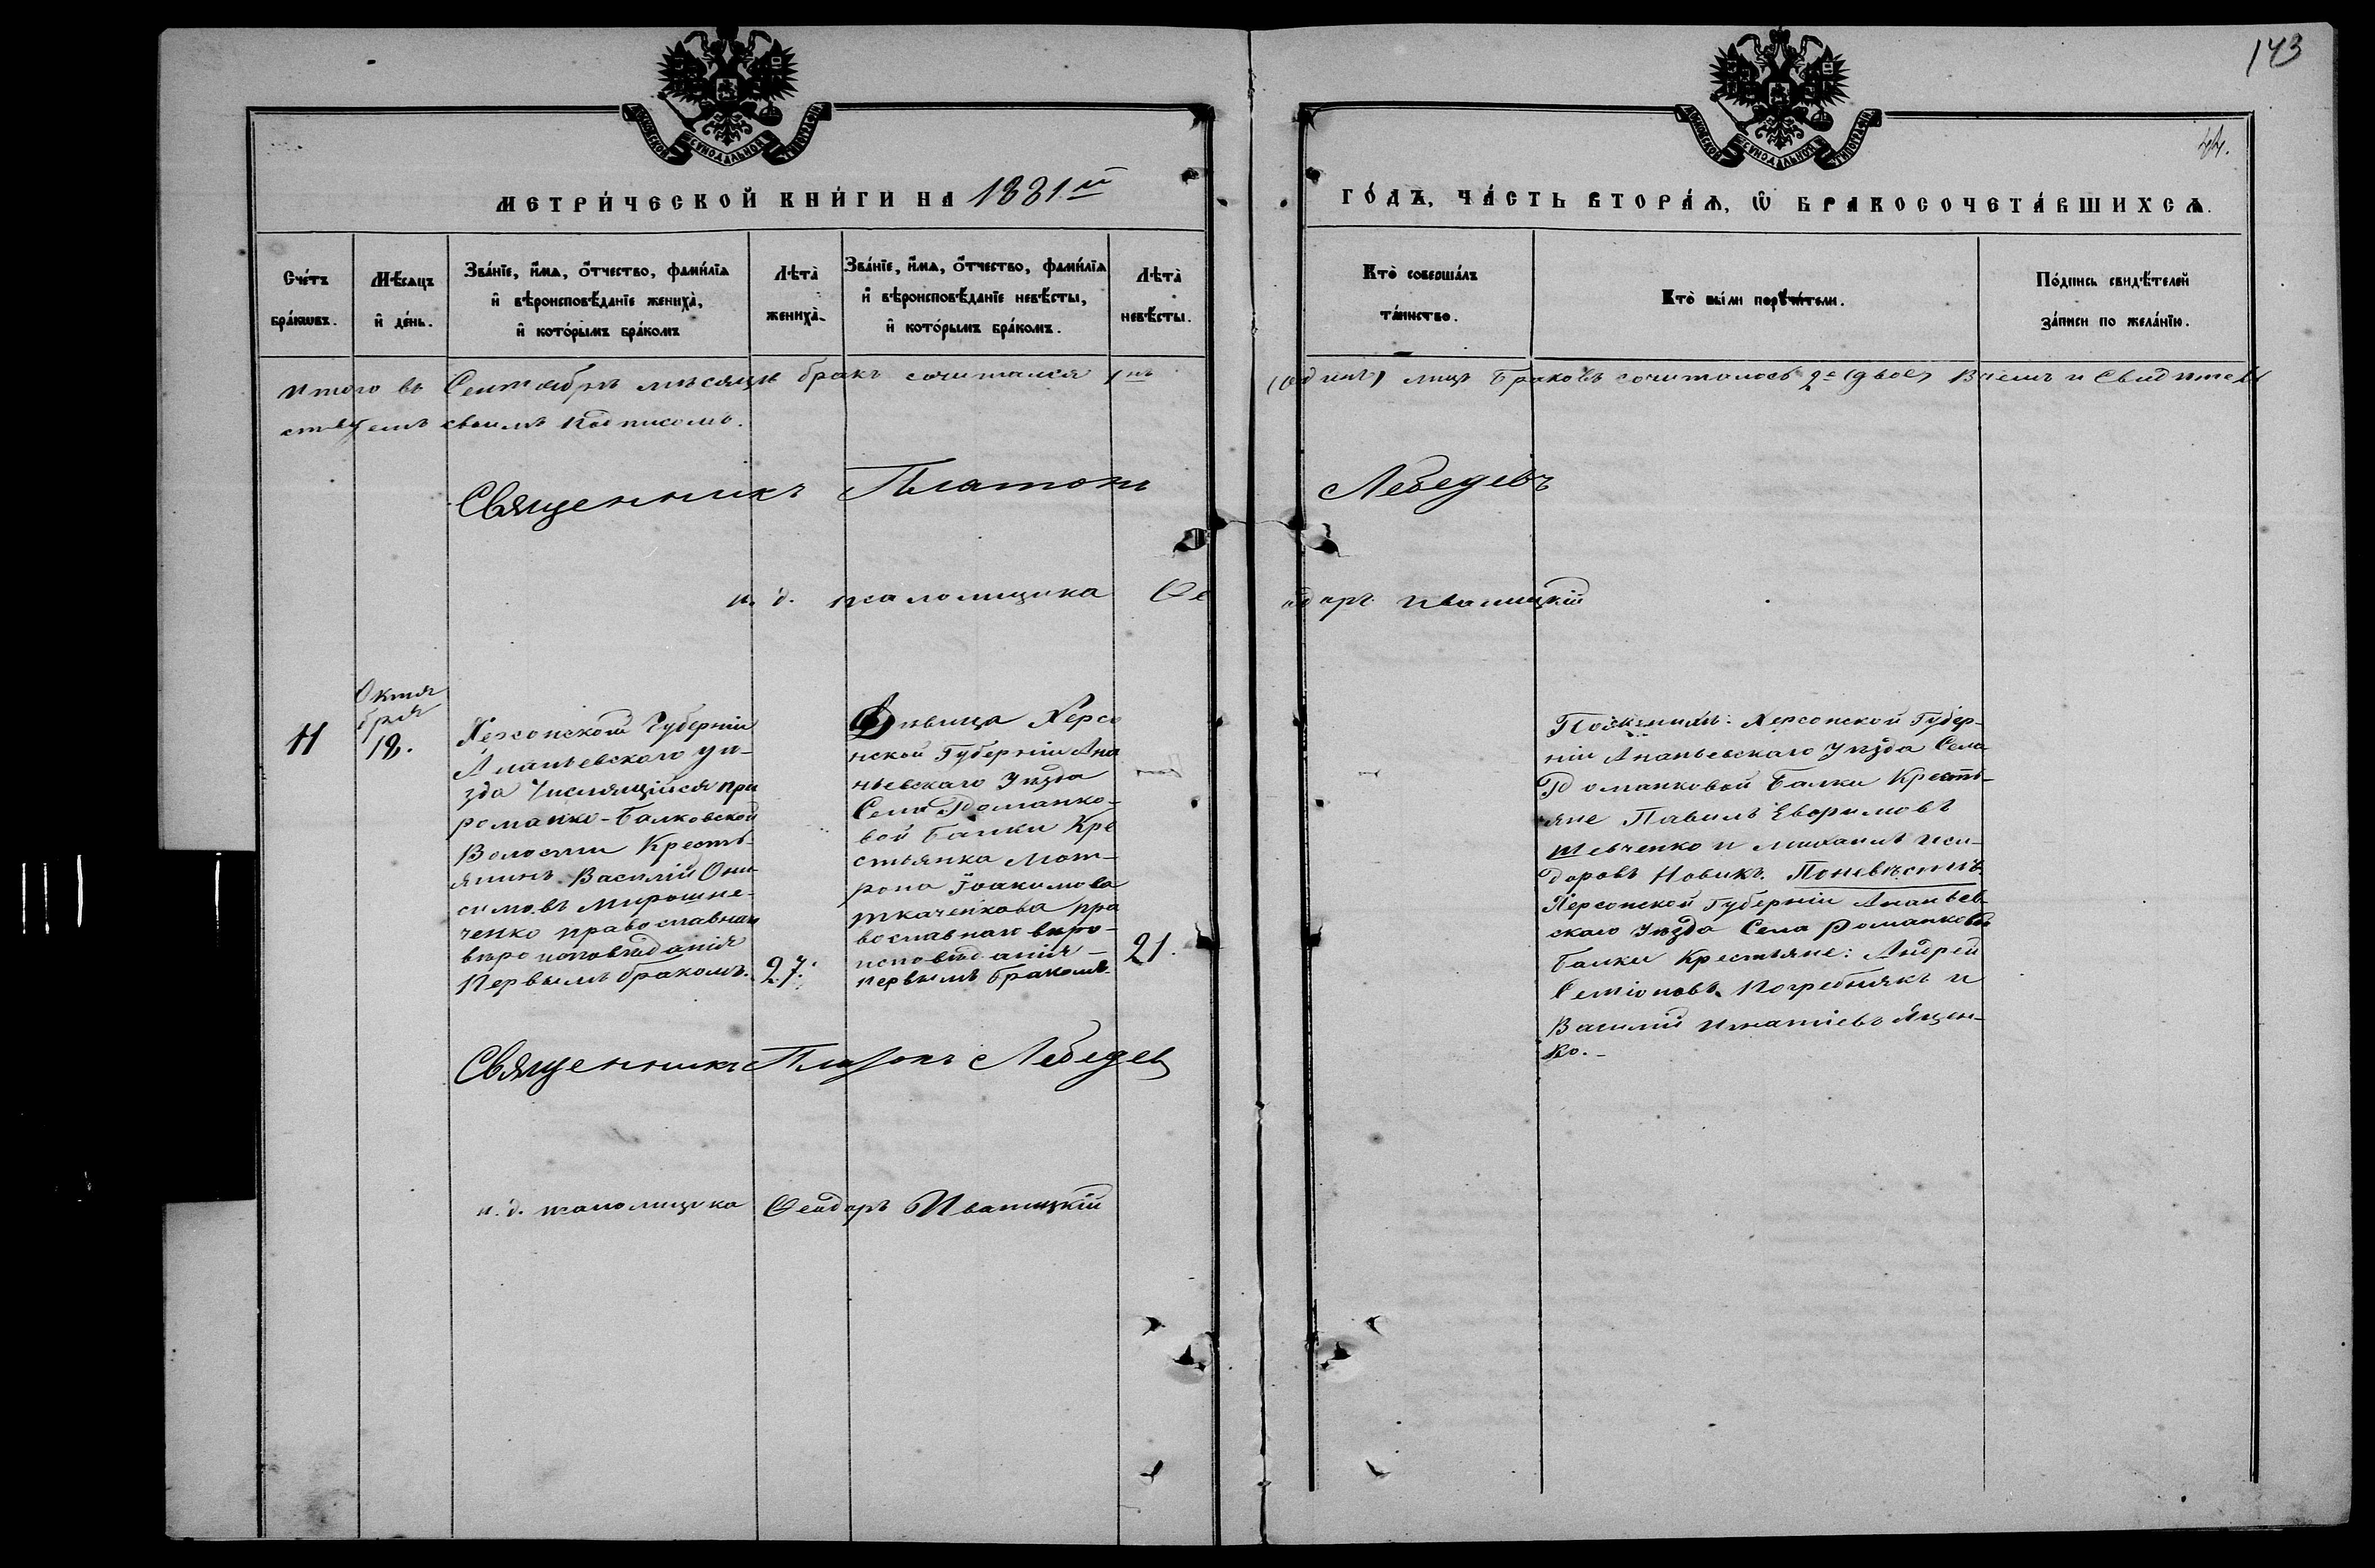 143
44.
МОСКОВСКОЙ СѴНОДАЛЬНОЙ ТИПОГРАФІИ
МОСКОВСКОЙ СѴНОДАЛЬНОЙ ТИПОГРАФІИ
МЕТРИ́ЧЕСКОЙ КНИ́ГИ НА 1881й
ГО́ДЪ, ЧА́СТЬ ВТОРА́Ѧ, Ѡ҆ БРАКОСОЧЕТА́ВШИХСѦ.
Сче́тъ бра́кѡвъ.
Мѣ́сѧцъ и҆ де́нь.
Зва́нїе, и҆́мѧ, ѻ҆́тчество, фами́лїѧ
и҆ вѣроисповѣ́данїе жениха̀,
и҆ кото́рымъ бра́комъ
Лѣта̀ жениха̀.
Зва́нїе, и҆́мѧ, ѻ҆́тчество, фами́лїѧ
и҆ вѣроисповѣ́данїе невѣ́сты,
и҆ кото́рымъ бра́комъ.
Лѣта̀ невѣ́сты.
Кто̀ соверша́лъ та́инство.
Кто̀ бы́ли порꙋчи́тели.
По́дпись свидѣ́телей за́писи по жела́нїю.
Итого въ Сентябрѣ мѣсяцѣ бракъ сочитался 1нъ (одинъ) лицъ браковъ сочиталось 2е (двое) В чемъ и Свидѣтель
ствуемъ своимъ Подписомъ.
Священникъ Платонъ Лебедевъ
и. д. псаломщика Ѳеодоръ Иваницкій
Октя
бря
11
18.
Херсонской Губерніи
Ананьевского уѣ-
зда Числящійся при
романко-Балковской
Волости Кресть-
янинъ Василій Они-
симовъ Мирошне-
ченко православнаго
вѣроисповѣданія
Первымъ бракомъ.
27.
Дѣвица Херсо
нской Губерніи Ана
ньевскаго Уѣзда
Села Романко-
вой Балки Кре
стьянка Мот-
рона Іоакимова
ткаченкова пра
вославнаго вѣро-
исповѣданія -
первымъ бракомъ.
21.
По женихѣ: Херсонской Губер-
ніи Ананьевскаго Уѣзда Села
Романковой Балки Кресть-
яне Павилъ Евфимовъ
Шевченко и Михаилъ Иси-
доровъ Новикъ. По невѣстѣ:
Херсонской Губерніи Ананьев-
скаго Уѣзда Села Романковой
Балки Крестьяне: Андрей
Семіоновъ Погребнякъ и
Василій Игнатіевъ Яцен-
ко. -
Священникъ Платонъ Лебедев
и. д. псаломщика Ѳеодоръ Иваницкій